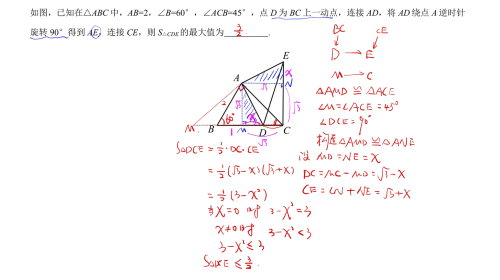 如图，已知在△ABC中，AB=2，∠B=60°，∠ACB=45°，点 D 为 BC 上一动点，连接 AD，将 AD 绕点 A 逆时针
旋转 90° 得到 AE，连接 CE，则 S△CDE 的最大值为 3/2 .
BC CE
D → E
M → C
△AMD ≌ △ACE
∠M=∠ACE=45°
∠DCE=90°
构造△AMD ≌ △ANE
设 MD=NE=x
DC=MC-MD=√3-x
CE=CN+NE=√3+x
E
A
x
N
√3
√3
2
60°
√3
x
M
B
1
M
D
C
√3
S△DCE = 1/2·DC·CE
= 1/2(√3-x)(√3+x)
= 1/2(3-x²)
当x=0时 3-x²=3
x≠0时 3-x²<3
3-x²≤3
S△DCE ≤ 3/2.